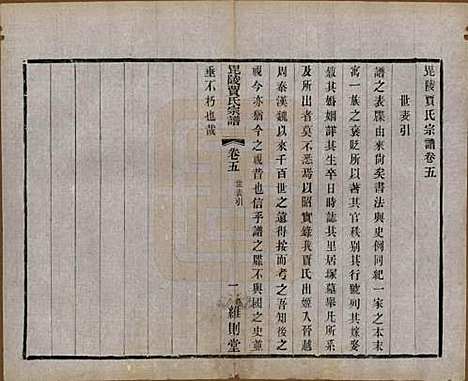 毘陵賈氏宗譜卷五
世表引
譜之表牒由來尚矣書法與史例同紀一家之本末
寓一族之褒貶所以著其官秩別其行號列其嫁娶
敘其婚姻詳其生卒日時誌其里居塚墓舉凡所系
及所出者莫不悉焉以昭實錄我賈氏出姬入晉越
周秦漢魏以來千百世之遠得按而考之吾知後之
視今亦猶今之視昔也信乎譜之牒不與國之史並
垂不朽也哉
毘陵賈氏宗譜
卷五
世表引
一
維則堂